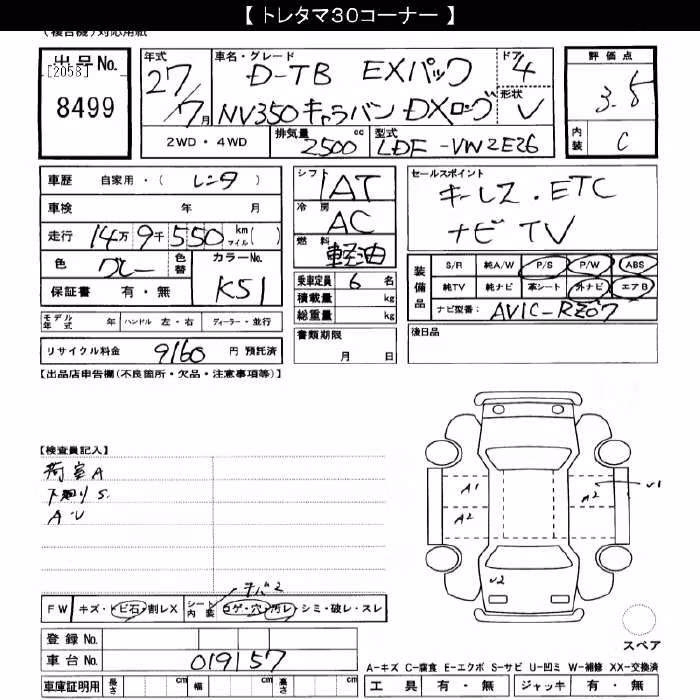 【 トレタマ30コーナー 】
(複合機)対応用紙
出品No. [2058] 8499
年式 27/7月
車名・グレード D-TB EXパック
NV350キャラバン DXロング
ドア 4
形状 V
評価点 3.5
内装 C
2WD・4WD 排気量 2500cc 型式 LDF-VW2E26
車歴 自家用・( レンタ )
車検 年 月
走行 14万9千550 km マイル( )
色 グレー 色替 カラーNo. K51
保証書 有・無
シフト 1AT
冷房 AC
燃料 軽油
乗車定員 6名
積載量 kg
総重量 kg
書類期限 月 日
セールスポイント
キーレス・ETC
ナビ TV
装備品 S/R 純A/W P/S P/W ABS
純TV 純ナビ 革シート 外ナビ エアB
ナビ型番: AVIC-RZ07
後日品
モデル年式 年 ハンドル 左・右 ディーラー・並行
リサイクル料金 9160 円 預託済
【出品店申告欄(不良箇所・欠品・注意事項等)】
【検査員記入】
荷室A
下廻りS
A・U
A1
A2
A2
U1
U2
FW キズ・トビ石・割レX シート内装 コゲ・穴・汚レ・シミ・破レ・スレ
登録No.
車台No. 019157
車庫証明用 長さ cm 幅 cm 高さ cm
スペア
A-キズ C-腐食 E-エクボ S-サビ U-凹ミ W-補修 XX-交換済
工具 有・無 ジャッキ 有・無